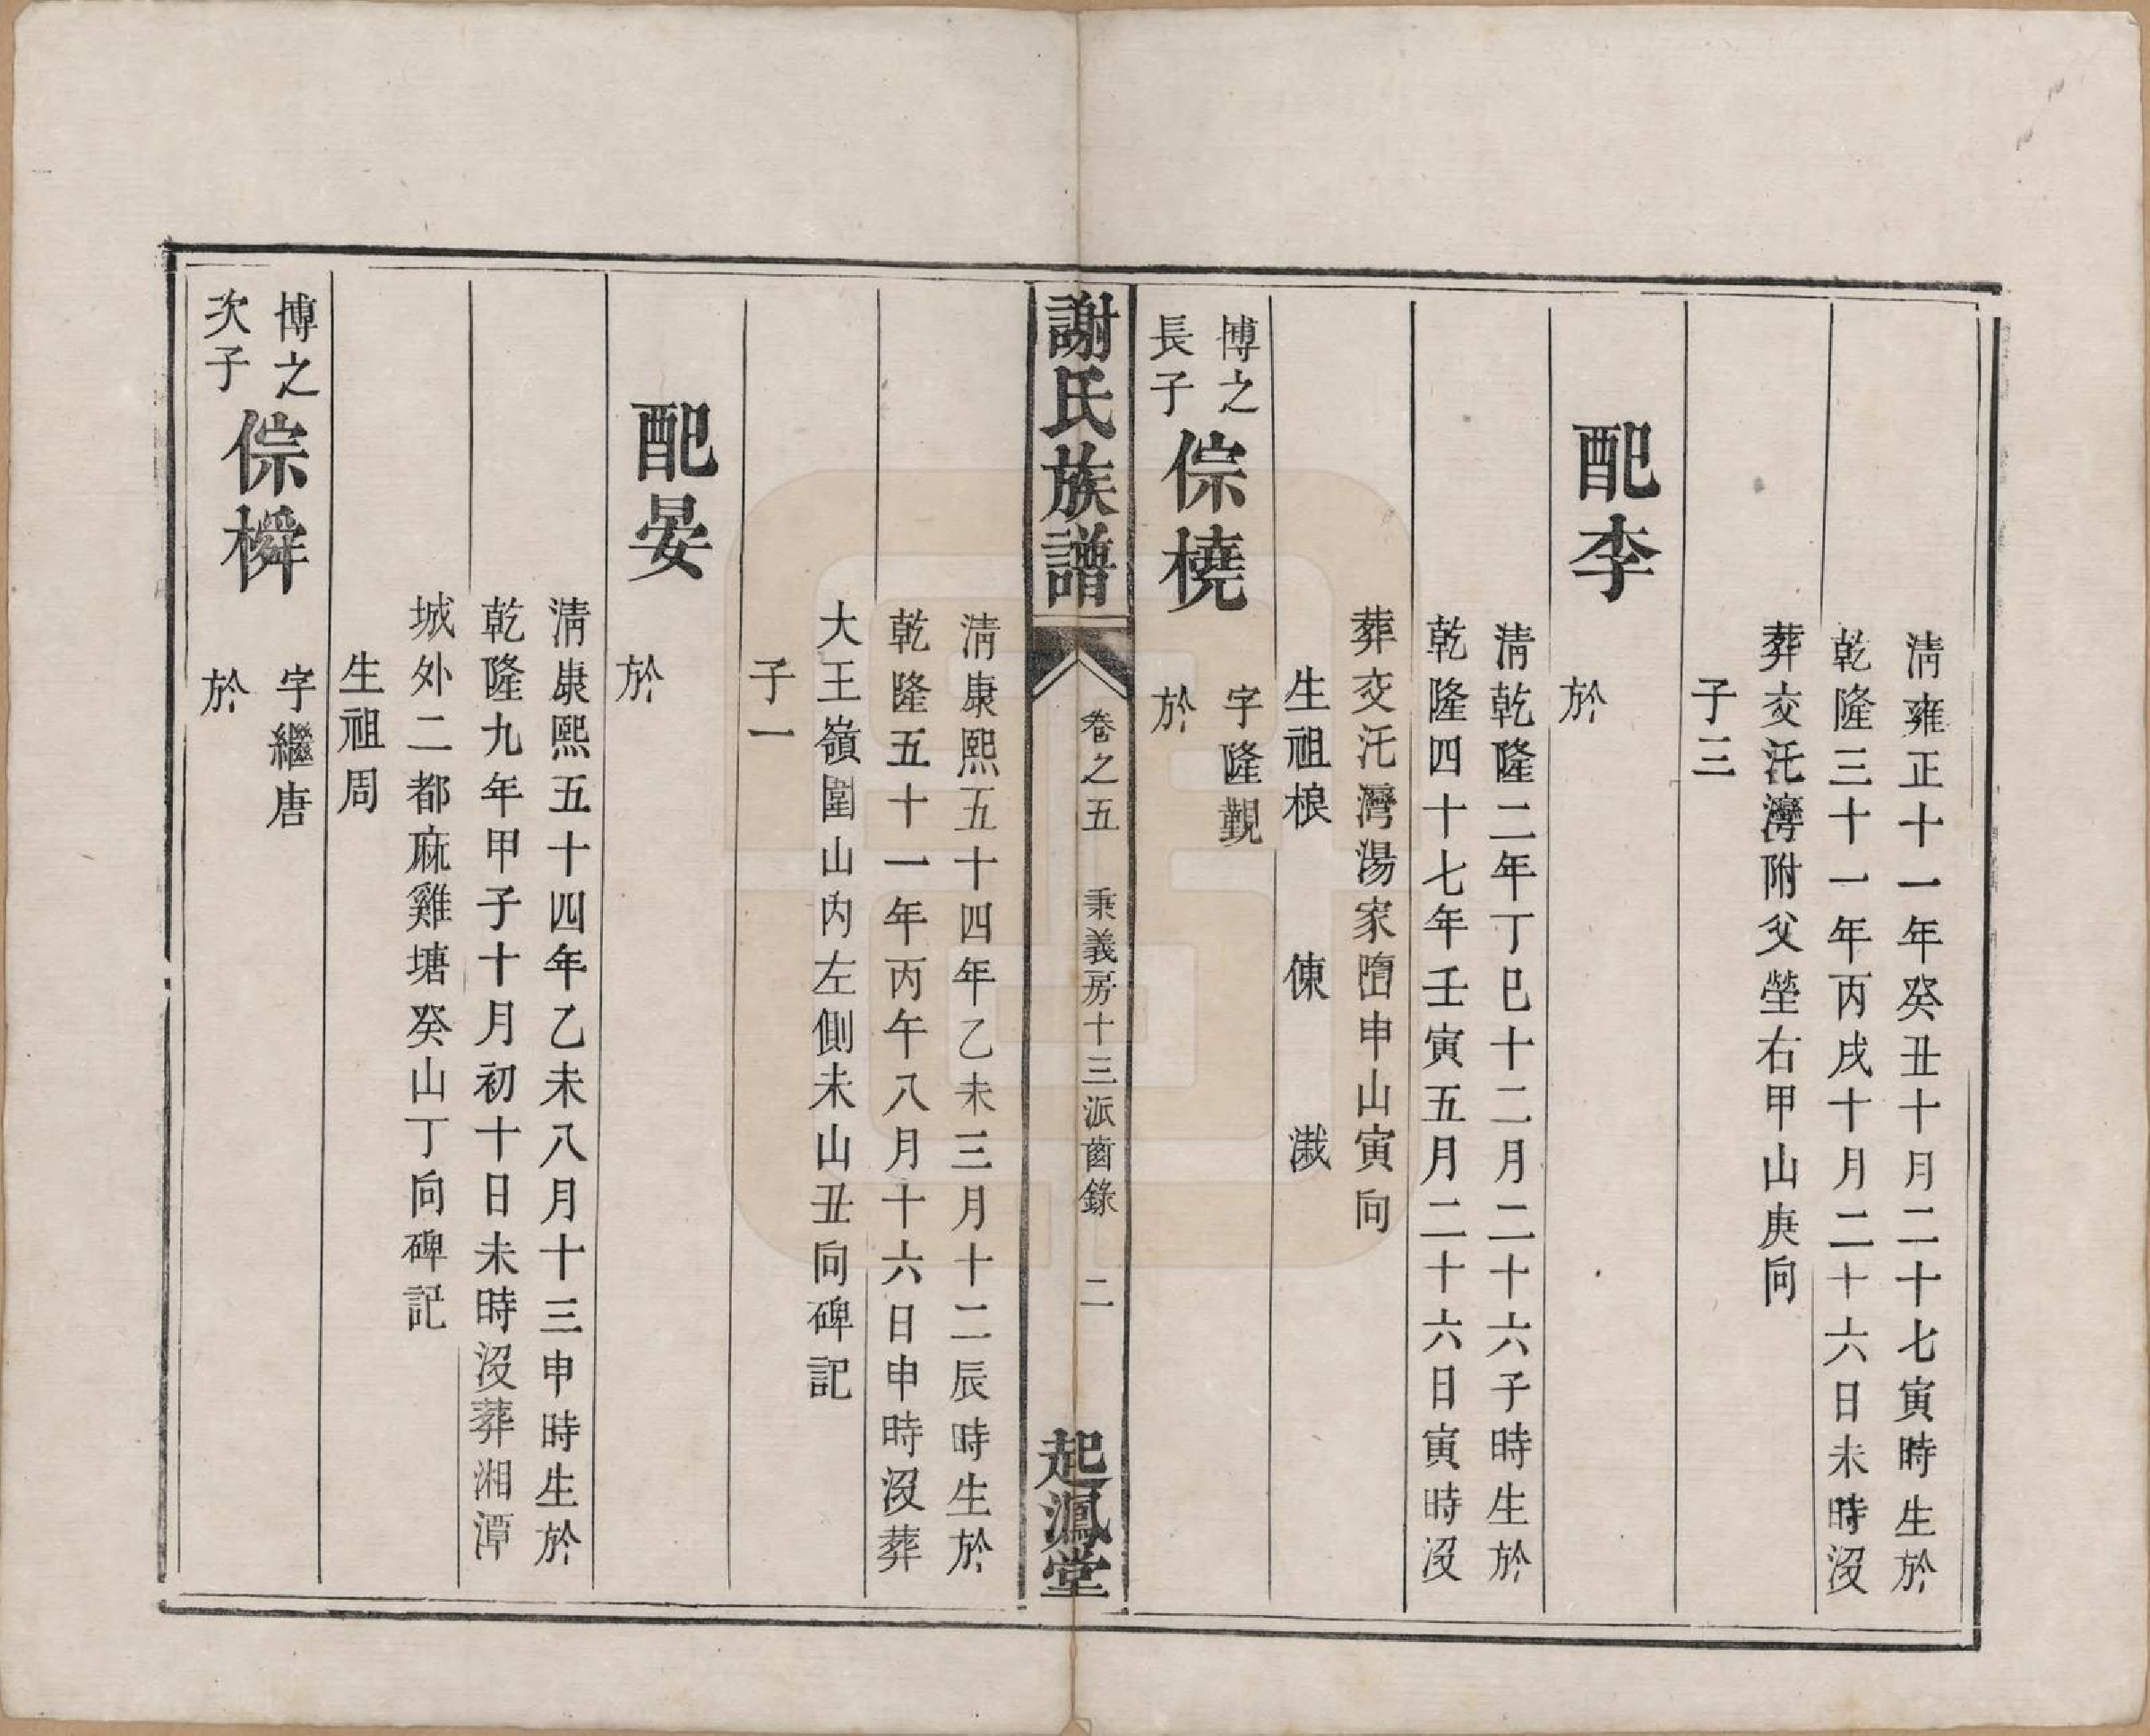 清雍正十一年癸丑十月二十七寅時生於
乾隆三十一年丙戌十月二十六日未時沒
葬交汑灣附父塋右甲山庚向
子三
配李
於
清乾隆二年丁巳十二月二十六子時生於
乾隆四十七年壬寅五月二十六日寅時沒
葬交汑灣湯家墮申山寅向
生祖桹 倲 濈
博之
長子
倧橈
字隆覲
於
謝氏族譜
卷之五
秉義房十三派齒錄
二
起鳳堂
清康熙五十四年乙未三月十二辰時生於
乾隆五十一年丙午八月十六日申時沒葬
大王嶺圍山內左側未山丑向碑記
子一
配晏
於
清康熙五十四年乙未八月十三申時生於
乾隆九年甲子十月初十日未時沒葬湘潭
城外二都麻雞塘癸山丁向碑記
生祖周
博之
次子
倧橓
字繼唐
於